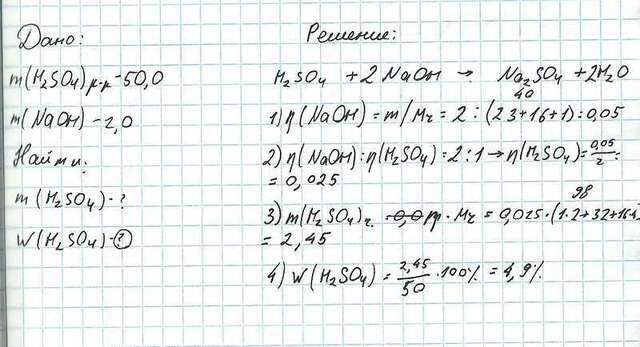 Дано:
m(H2SO4)р-р-50,0
m(NaOH)-2,0
Найти:
m(H2SO4)-?
W(H2SO4)-?
Решение:
H2SO4 + 2NaOH → Na2SO4 + 2H2O
40
1) η(NaOH) = m/Mr = 2 : (23+16+1) = 0,05
2) η(NaOH) : η(H2SO4) = 2:1 → η(H2SO4) = 0,05/2 =
= 0,025
98
3) m(H2SO4) · Mr = 0,025·(1·2+32+16·4
= 2,45
4) W(H2SO4) = 2,45/50 · 100% = 4,9%